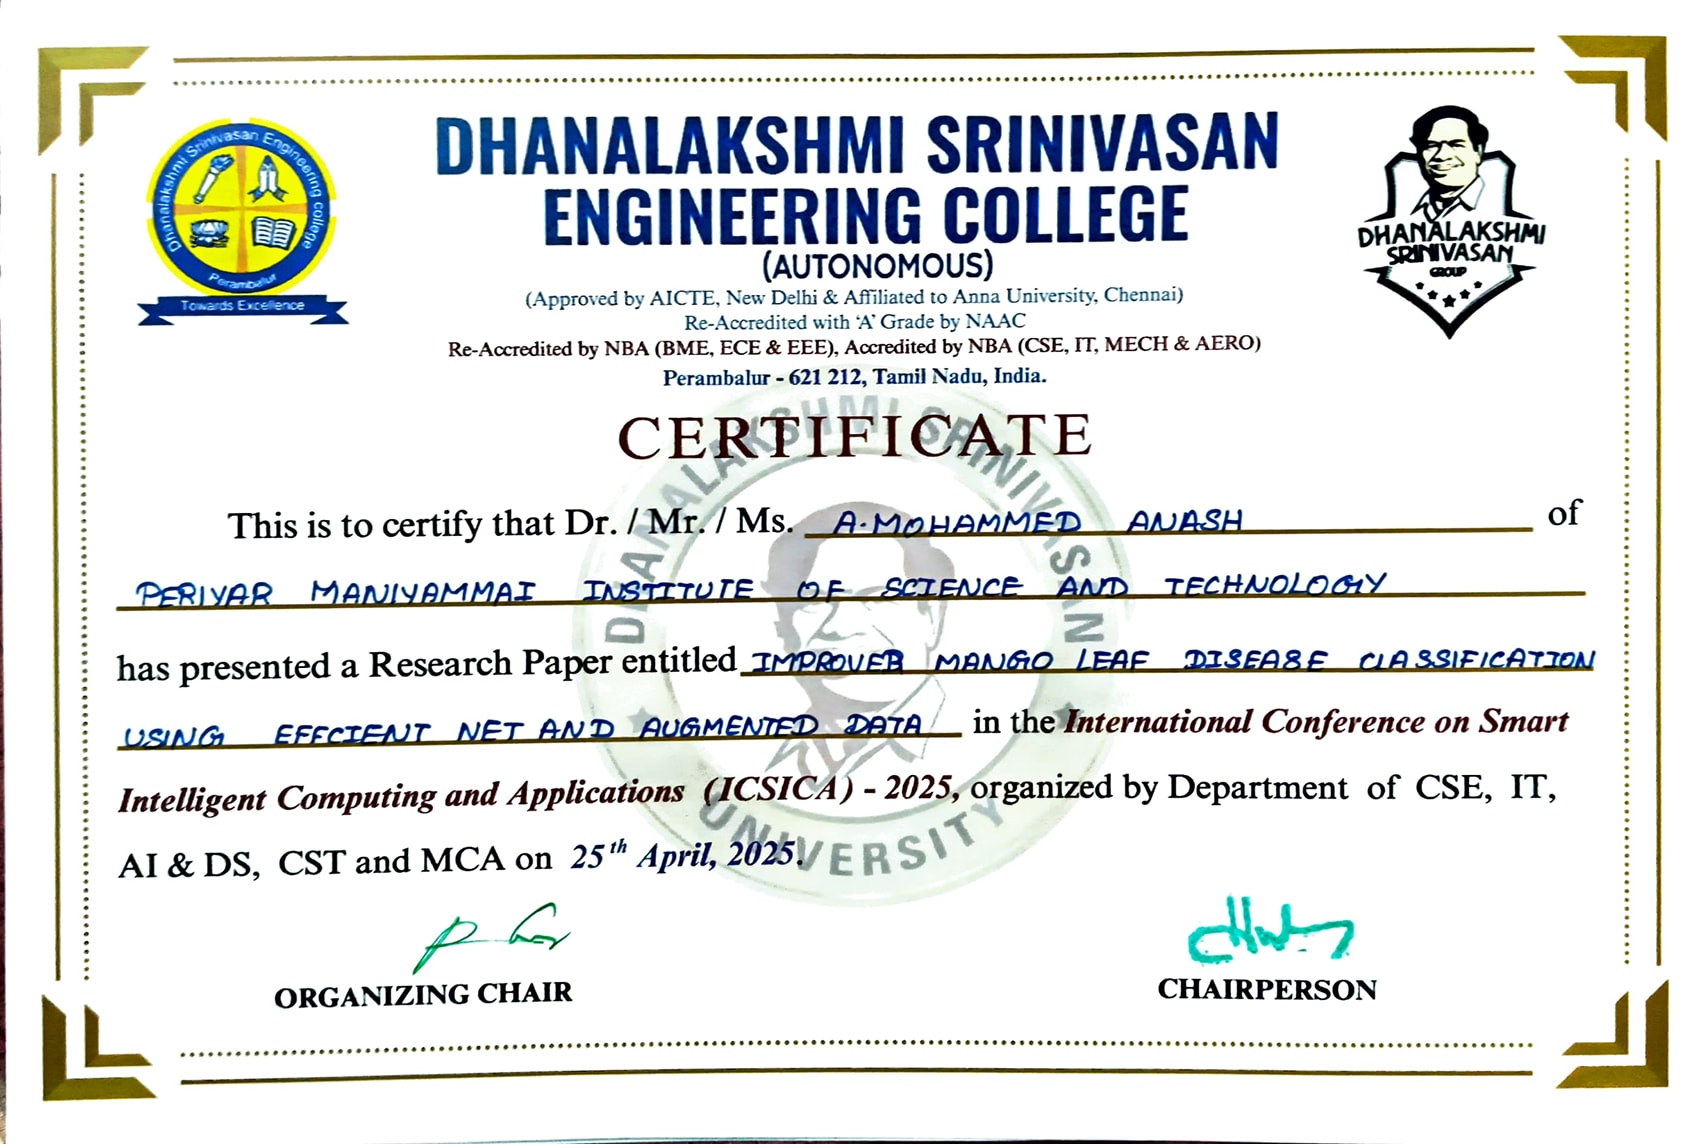 Dhanalakshmi Srinivasan Engineering college
Perambalur
Towards Excellence
DHANALAKSHMI SRINIVASAN
ENGINEERING COLLEGE
(AUTONOMOUS)
(Approved by AICTE, New Delhi & Affiliated to Anna University, Chennai)
Re-Accredited with ‘A’ Grade by NAAC
Re-Accredited by NBA (BME, ECE & EEE), Accredited by NBA (CSE, IT, MECH & AERO)
Perambalur - 621 212, Tamil Nadu, India.
DHANALAKSHMI
SRINIVASAN
GROUP
DHANALAKSHMI SRINIVASAN
UNIVERSITY
CERTIFICATE
This is to certify that Dr. / Mr. / Ms. A.MOHAMMED ANASH of
PERIYAR MANIYAMMAI INSTITUTE OF SCIENCE AND TECHNOLOGY
has presented a Research Paper entitled IMPROVER MANGO LEAF DISEASE CLASSIFICATION
USING EFFCIENT NET AND AUGMENTED DATA in the International Conference on Smart
Intelligent Computing and Applications (ICSICA) - 2025, organized by Department of CSE, IT,
AI & DS, CST and MCA on 25th April, 2025.
ORGANIZING CHAIR
CHAIRPERSON